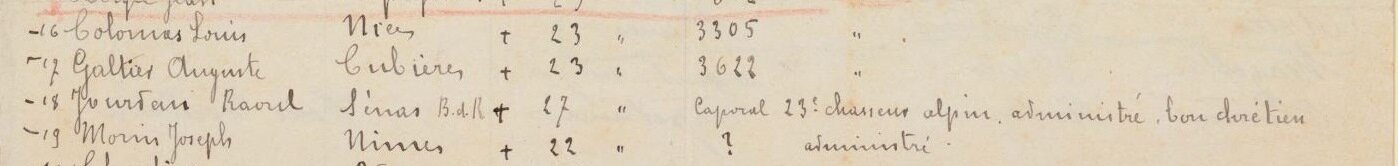 -16 Colomas Louis Nice + 23 " 3305 "
-17 Galtier Auguste Cubières + 23 " 3622 "
-18 Jourdan Raoul Sénas B.d.R + 27 " Caporal 23e chasseur alpin, administré, bon chrétien
-19 Morin Joseph Nimes + 22 " ? administré.